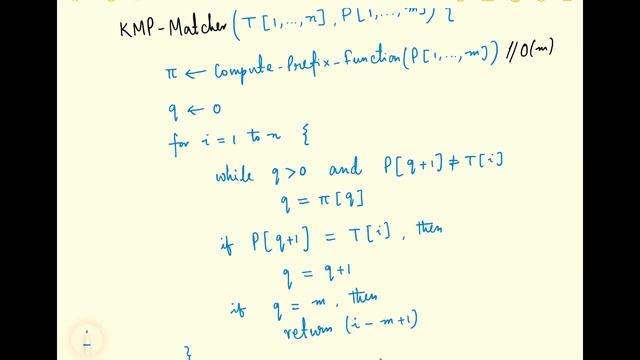 KMP-Matcher (T[1,...,n], P[1,...,m]) {
π ← Compute-Prefix-Function(P[1,...,m]) //O(m)
q ← 0
for i = 1 to n {
while q>0 and P[q+1] ≠ T[i]
q = π[q]
if P[q+1] = T[i], then
q = q+1
if q = m, then
return (i-m+1)
}